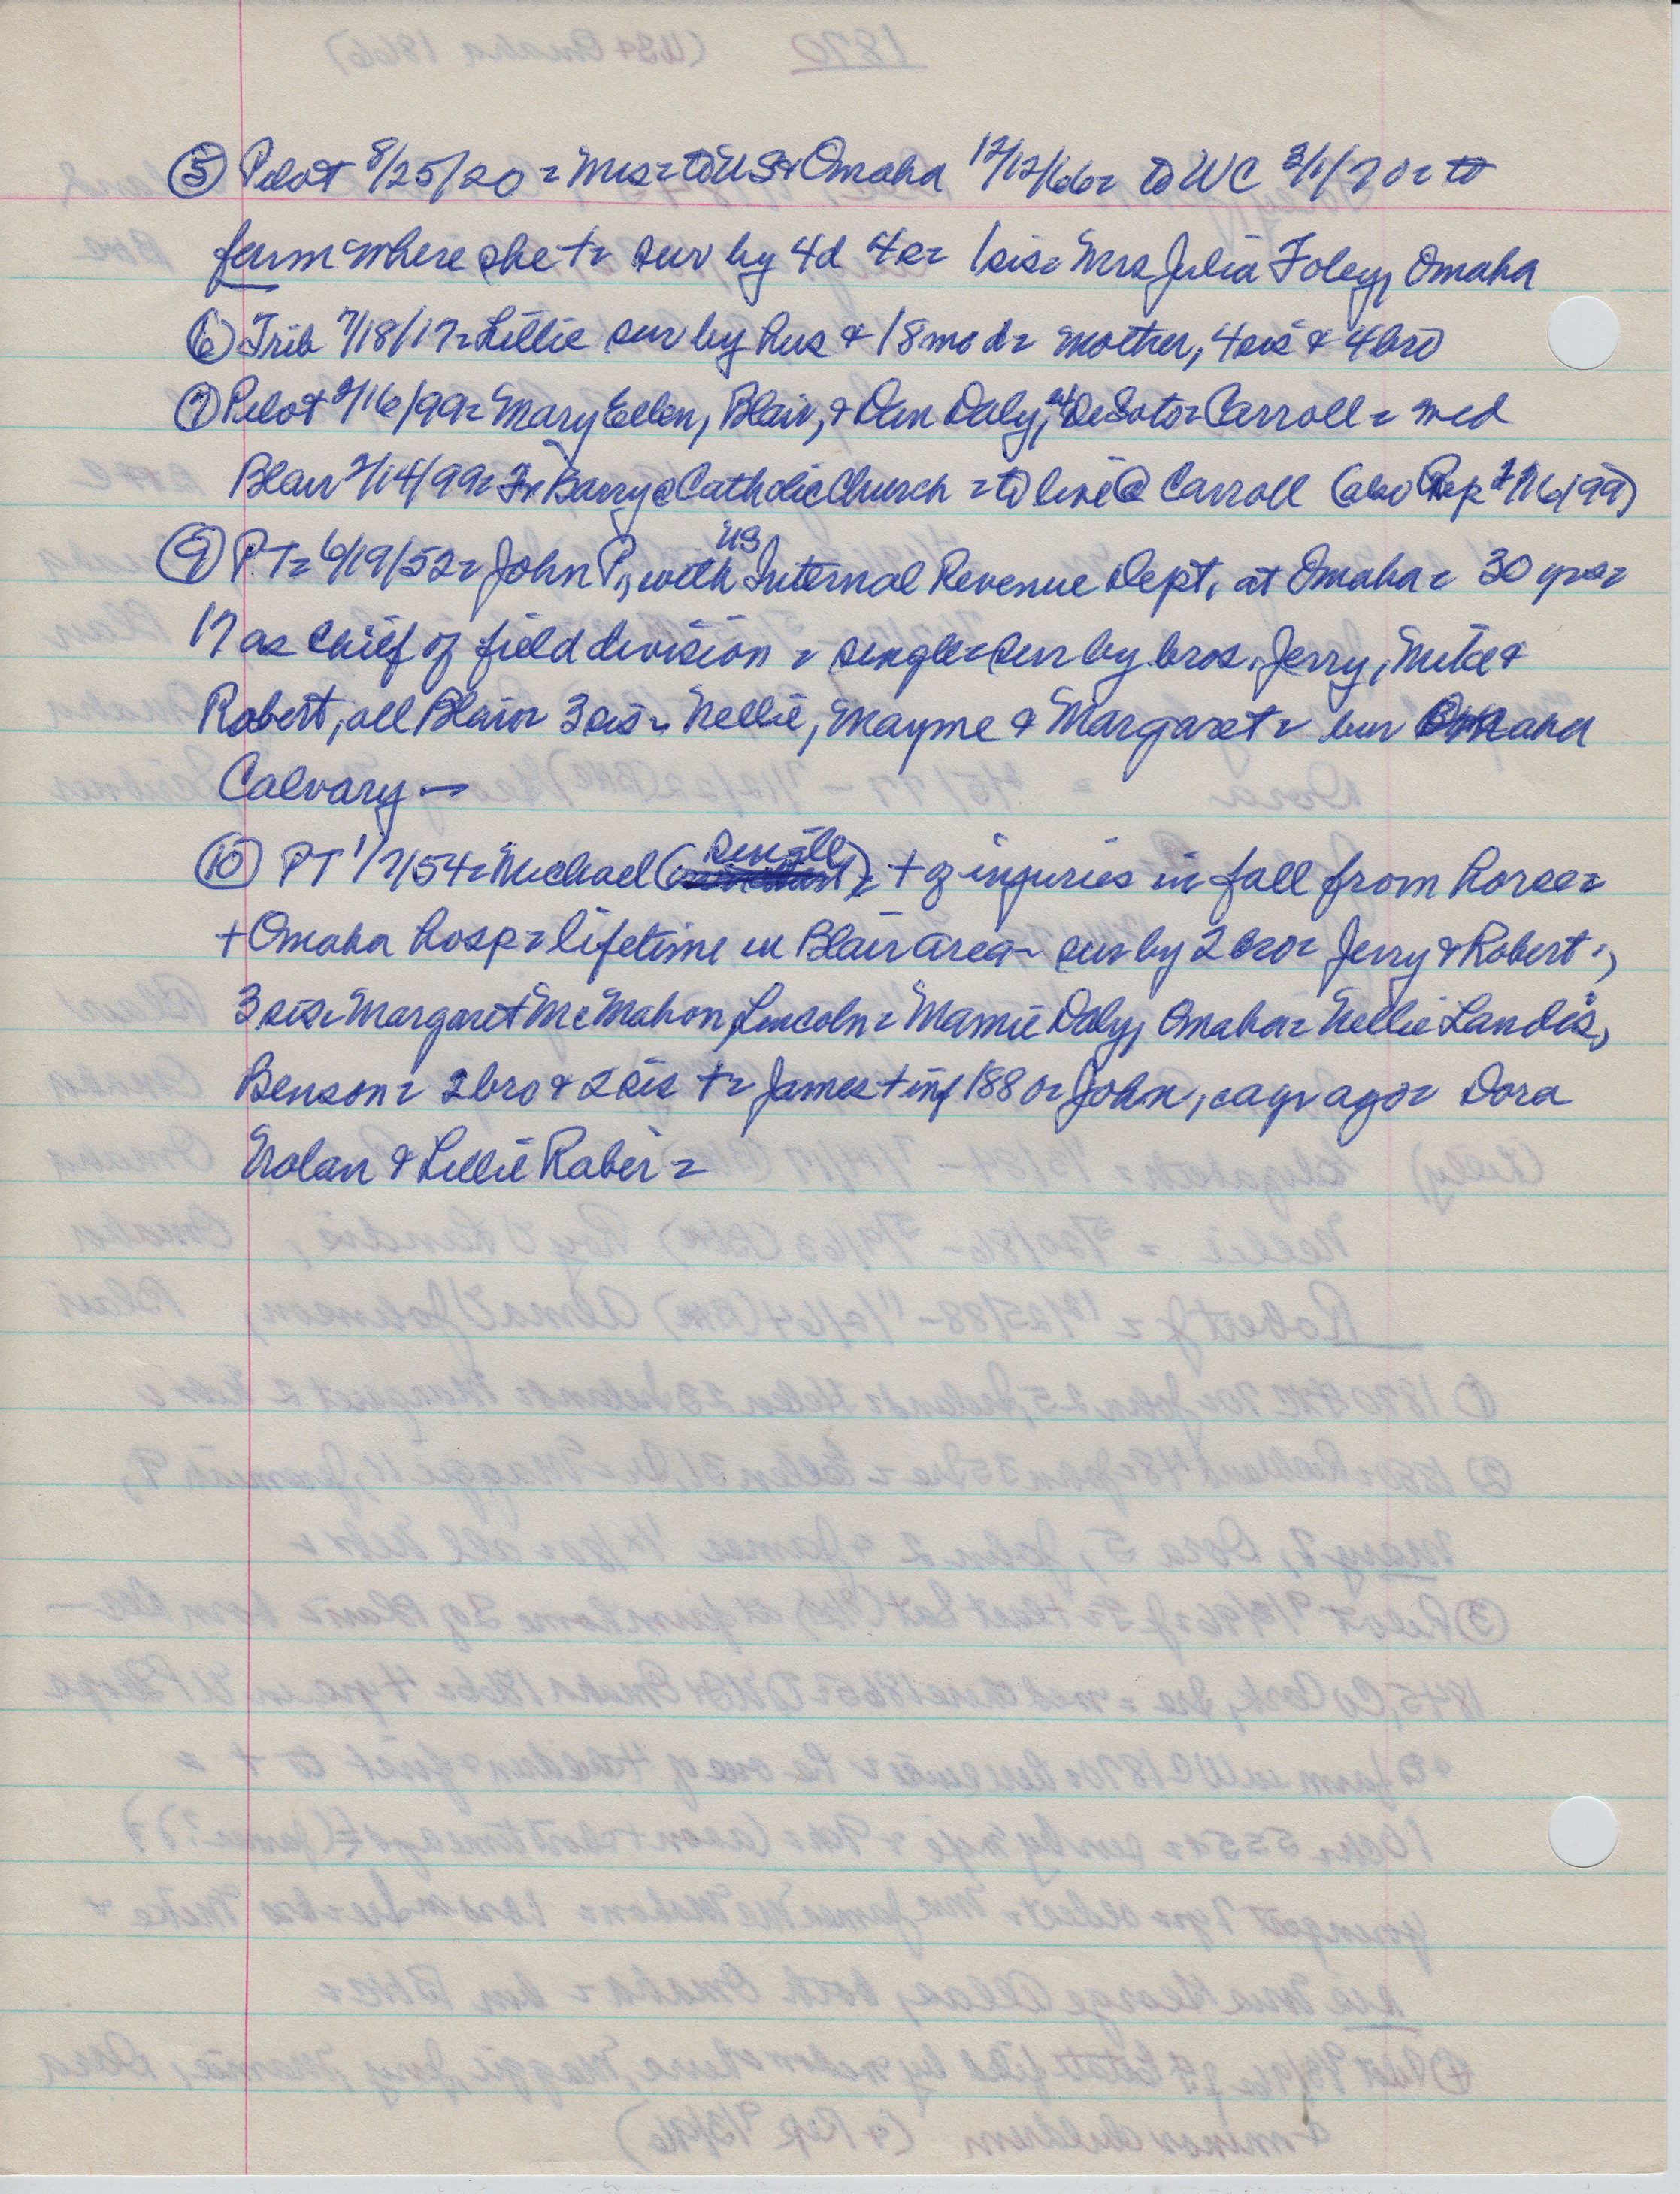 ⑤ Pilot 8/25/20 = Mrs = to US & Omaha 12/12/66 = to WC 3/1/70 = to
farm where she + = sur by 4d 4s = 1 sis = Mrs Julia Foley, Omaha
⑥ Trib 7/18/17 = Lillie sur by hus & 18 mo d = mother, 4 sis & 4 bro
⑦ Pilot 2/16/99 = Mary Ellen, Blair, & Dan Daly, 24 DeSoto = Carroll = med
Blair 2/14/99 = Fr Barry @ Catholic Church = to live @ Carroll (also Rep 2/16/99)
⑨ PT = 6/19/52 = John P., with US Internal Revenue Dept. at Omaha = 30 yrs =
17 as chief of field division = single = sur by bros. Jerry, Mike &
Robert, all Blair = 3 sis = Nellie, Mayme & Margaret = bur Omaha
Calvary —
⑩ PT 1/7/54 = Michael ( ) = + of injuries in fall from horse =
+ Omaha hosp = lifetime in Blair area = sur by 2 bro = Jerry & Robert;
3 sis = Margaret McMahon, Lincoln = Mamie Daly, Omaha = Nellie Landis,
Benson = 2 bro & 2 sis + = James + inf 1880 = John, ca yr ago = Dora
Nolan & Lillie Raber =